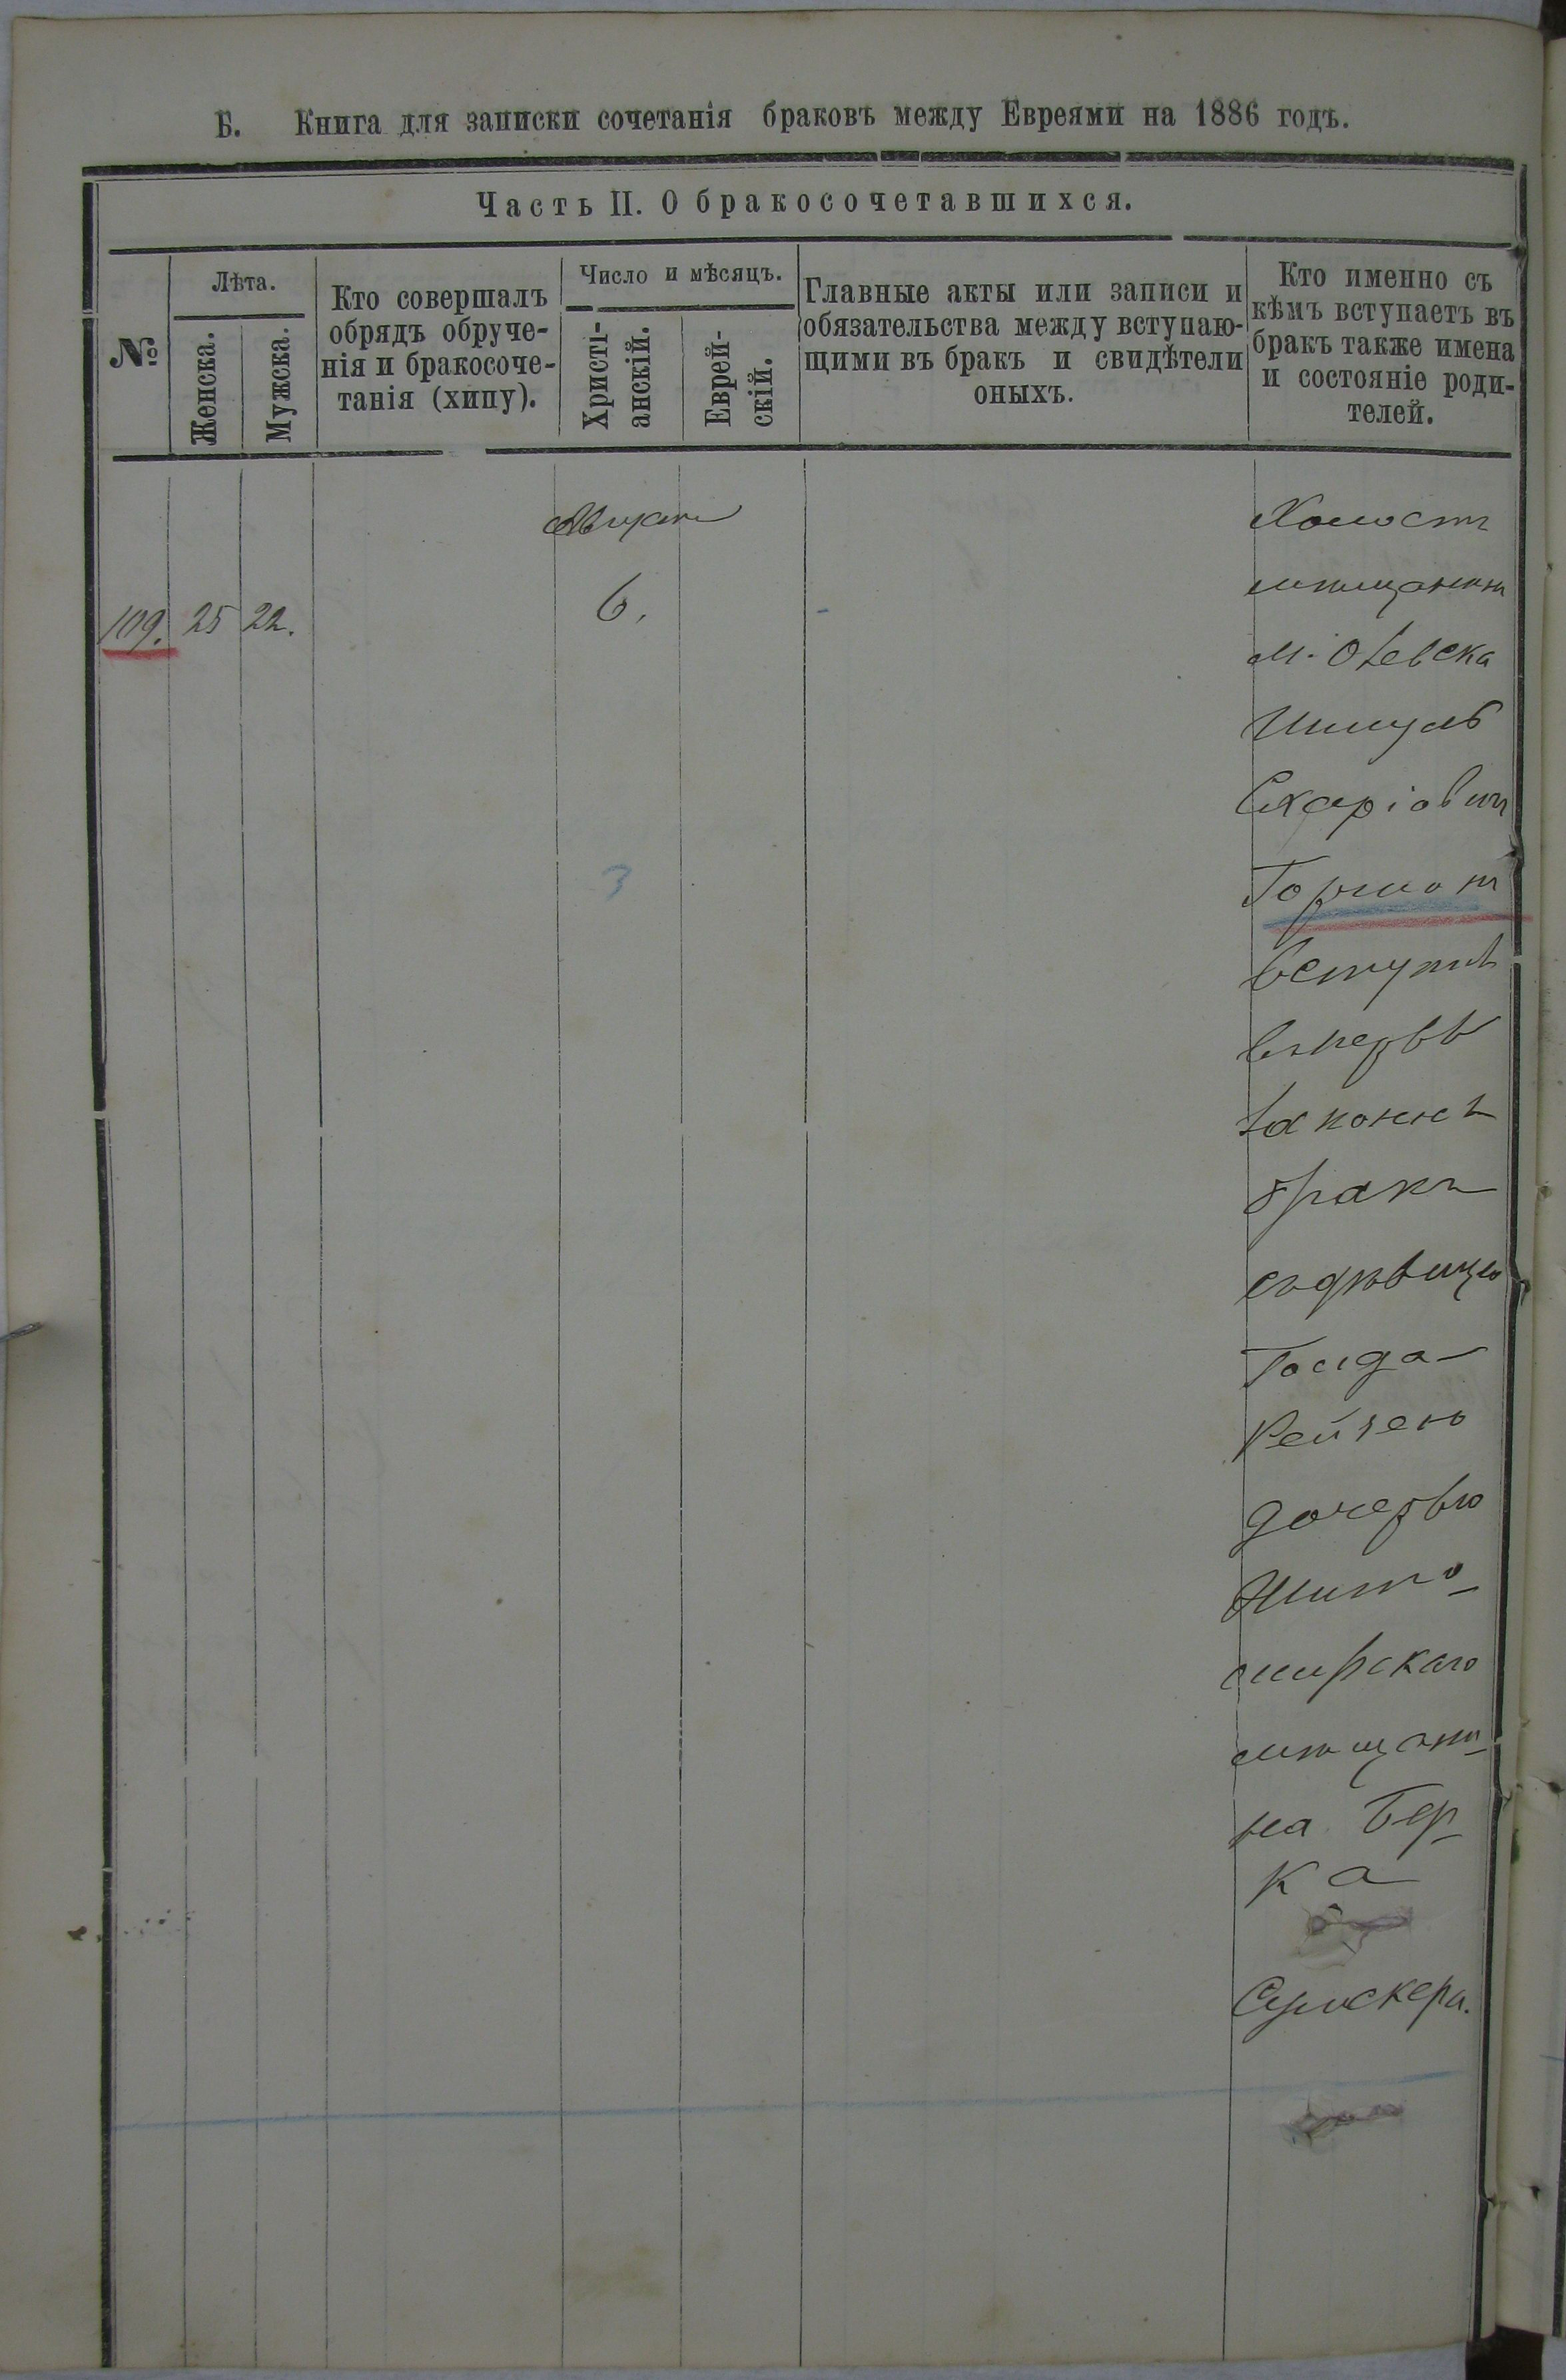 Б. Книга для записки сочетанія браковъ между Евреями на 1886 годъ.
Часть II. О бракосочетавшихся.
№
Лѣта.
Женска.
Мужска.
Кто совершалъ
обрядъ обруче-
нія и бракосоче-
танія (хипу).
Число и мѣсяцъ.
Христі-
анскій.
Еврей-
скій.
Главные акты или записи и
обязательства между вступаю-
щими въ бракъ и свидѣтели
оныхъ.
Кто именно съ
кѣмъ вступаетъ въ
бракъ также имена
и состояніе роди-
телей.
109. 25 22.
6.
3
Холостъ
мѣщанинъ
м. Олевска
Шмуль
Горшот
вступилъ
въ первы
законнъ
бракъ
съ дѣвицею
Рейзею
дочерью
Жито-
мирскаго
мѣщани-
на Бер-
ка